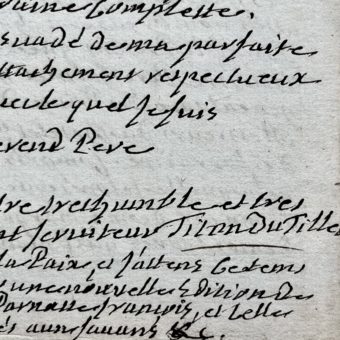 raine Complette.
suadé de ma parfaite
ttachement respectueux
uec lequel Je suis
erend Pere
tre tres humble et tres
nt serviteur Titon Du Tillet
la Paix, et j'attens ce tems
une nouvelle Edition de
Parnasse françois, et celle
és aux sauans &c.